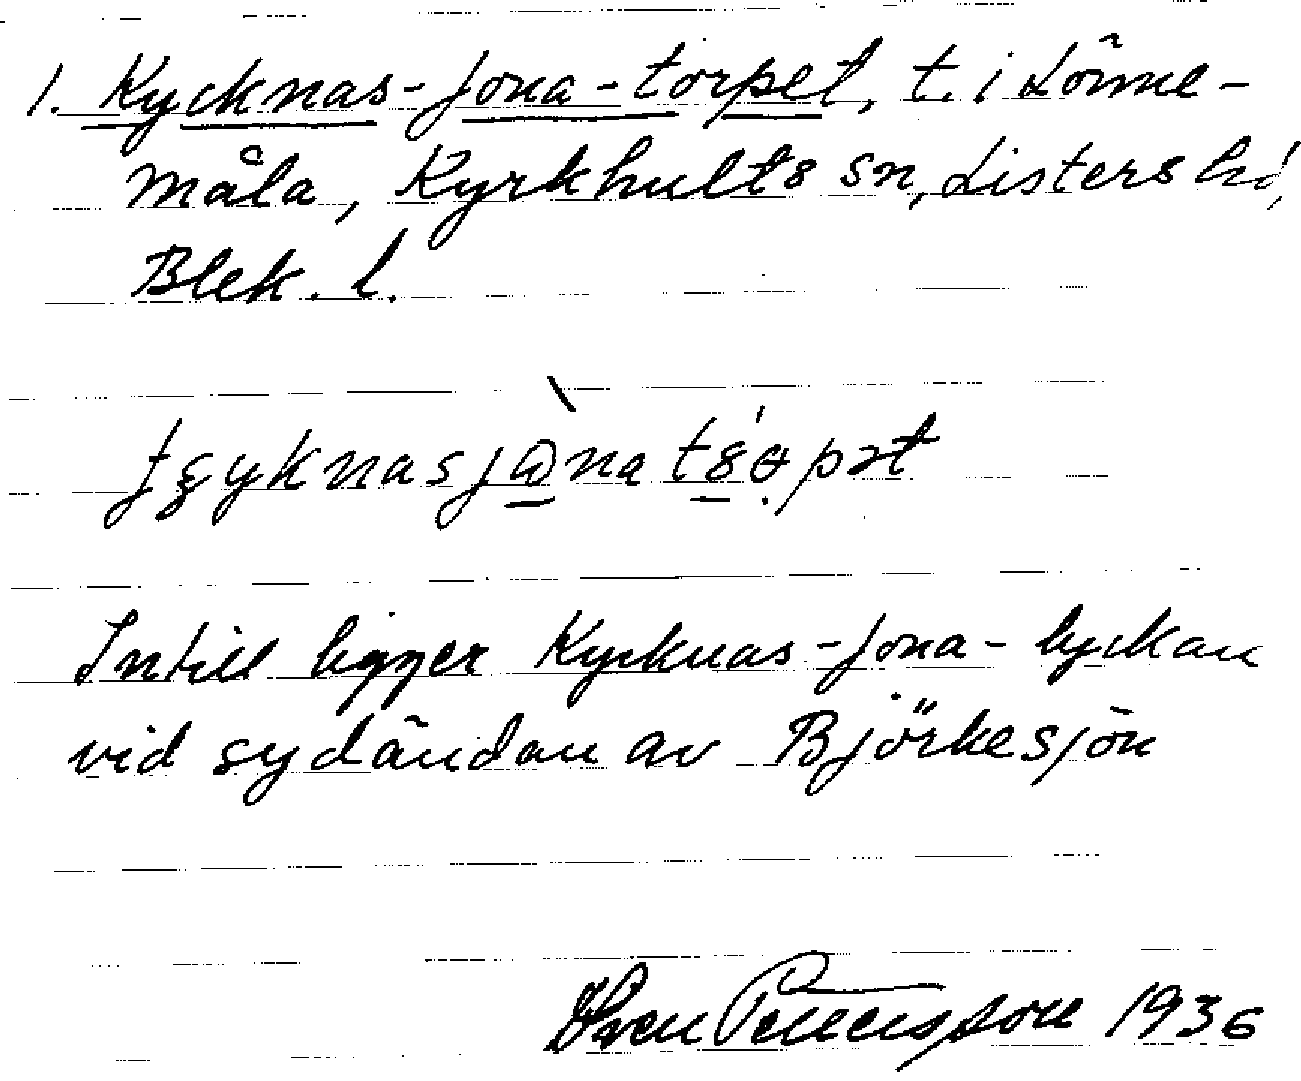 1. Kycknas-Jona-torpet, t. i Lönne-
måla, Kyrkhults sn, Listers hd,
Blek. l.
Intill ligger Kycknas-Jona-lyckan
vid sydändan av Björkesjön
Sven 1936